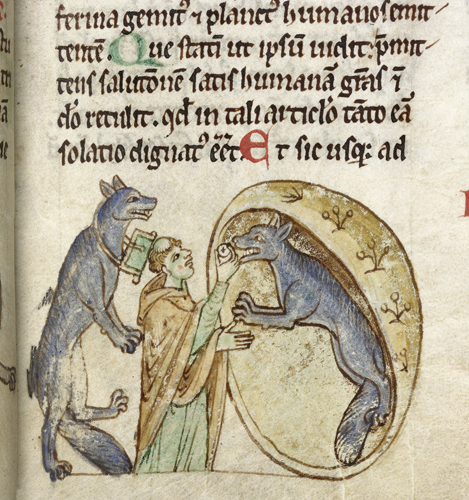 ferina gemit⁹ ⁊ planct⁹ humanos emit-
tentē. Que statī ut ipsū uidit. p̄mit-
tens salutōnē satis humanā. grās ⁊̄
dō retulit. qd̄ in tali articl̓o tāto eā
solatio dignat⁹ eēt. Et sic usq; ad